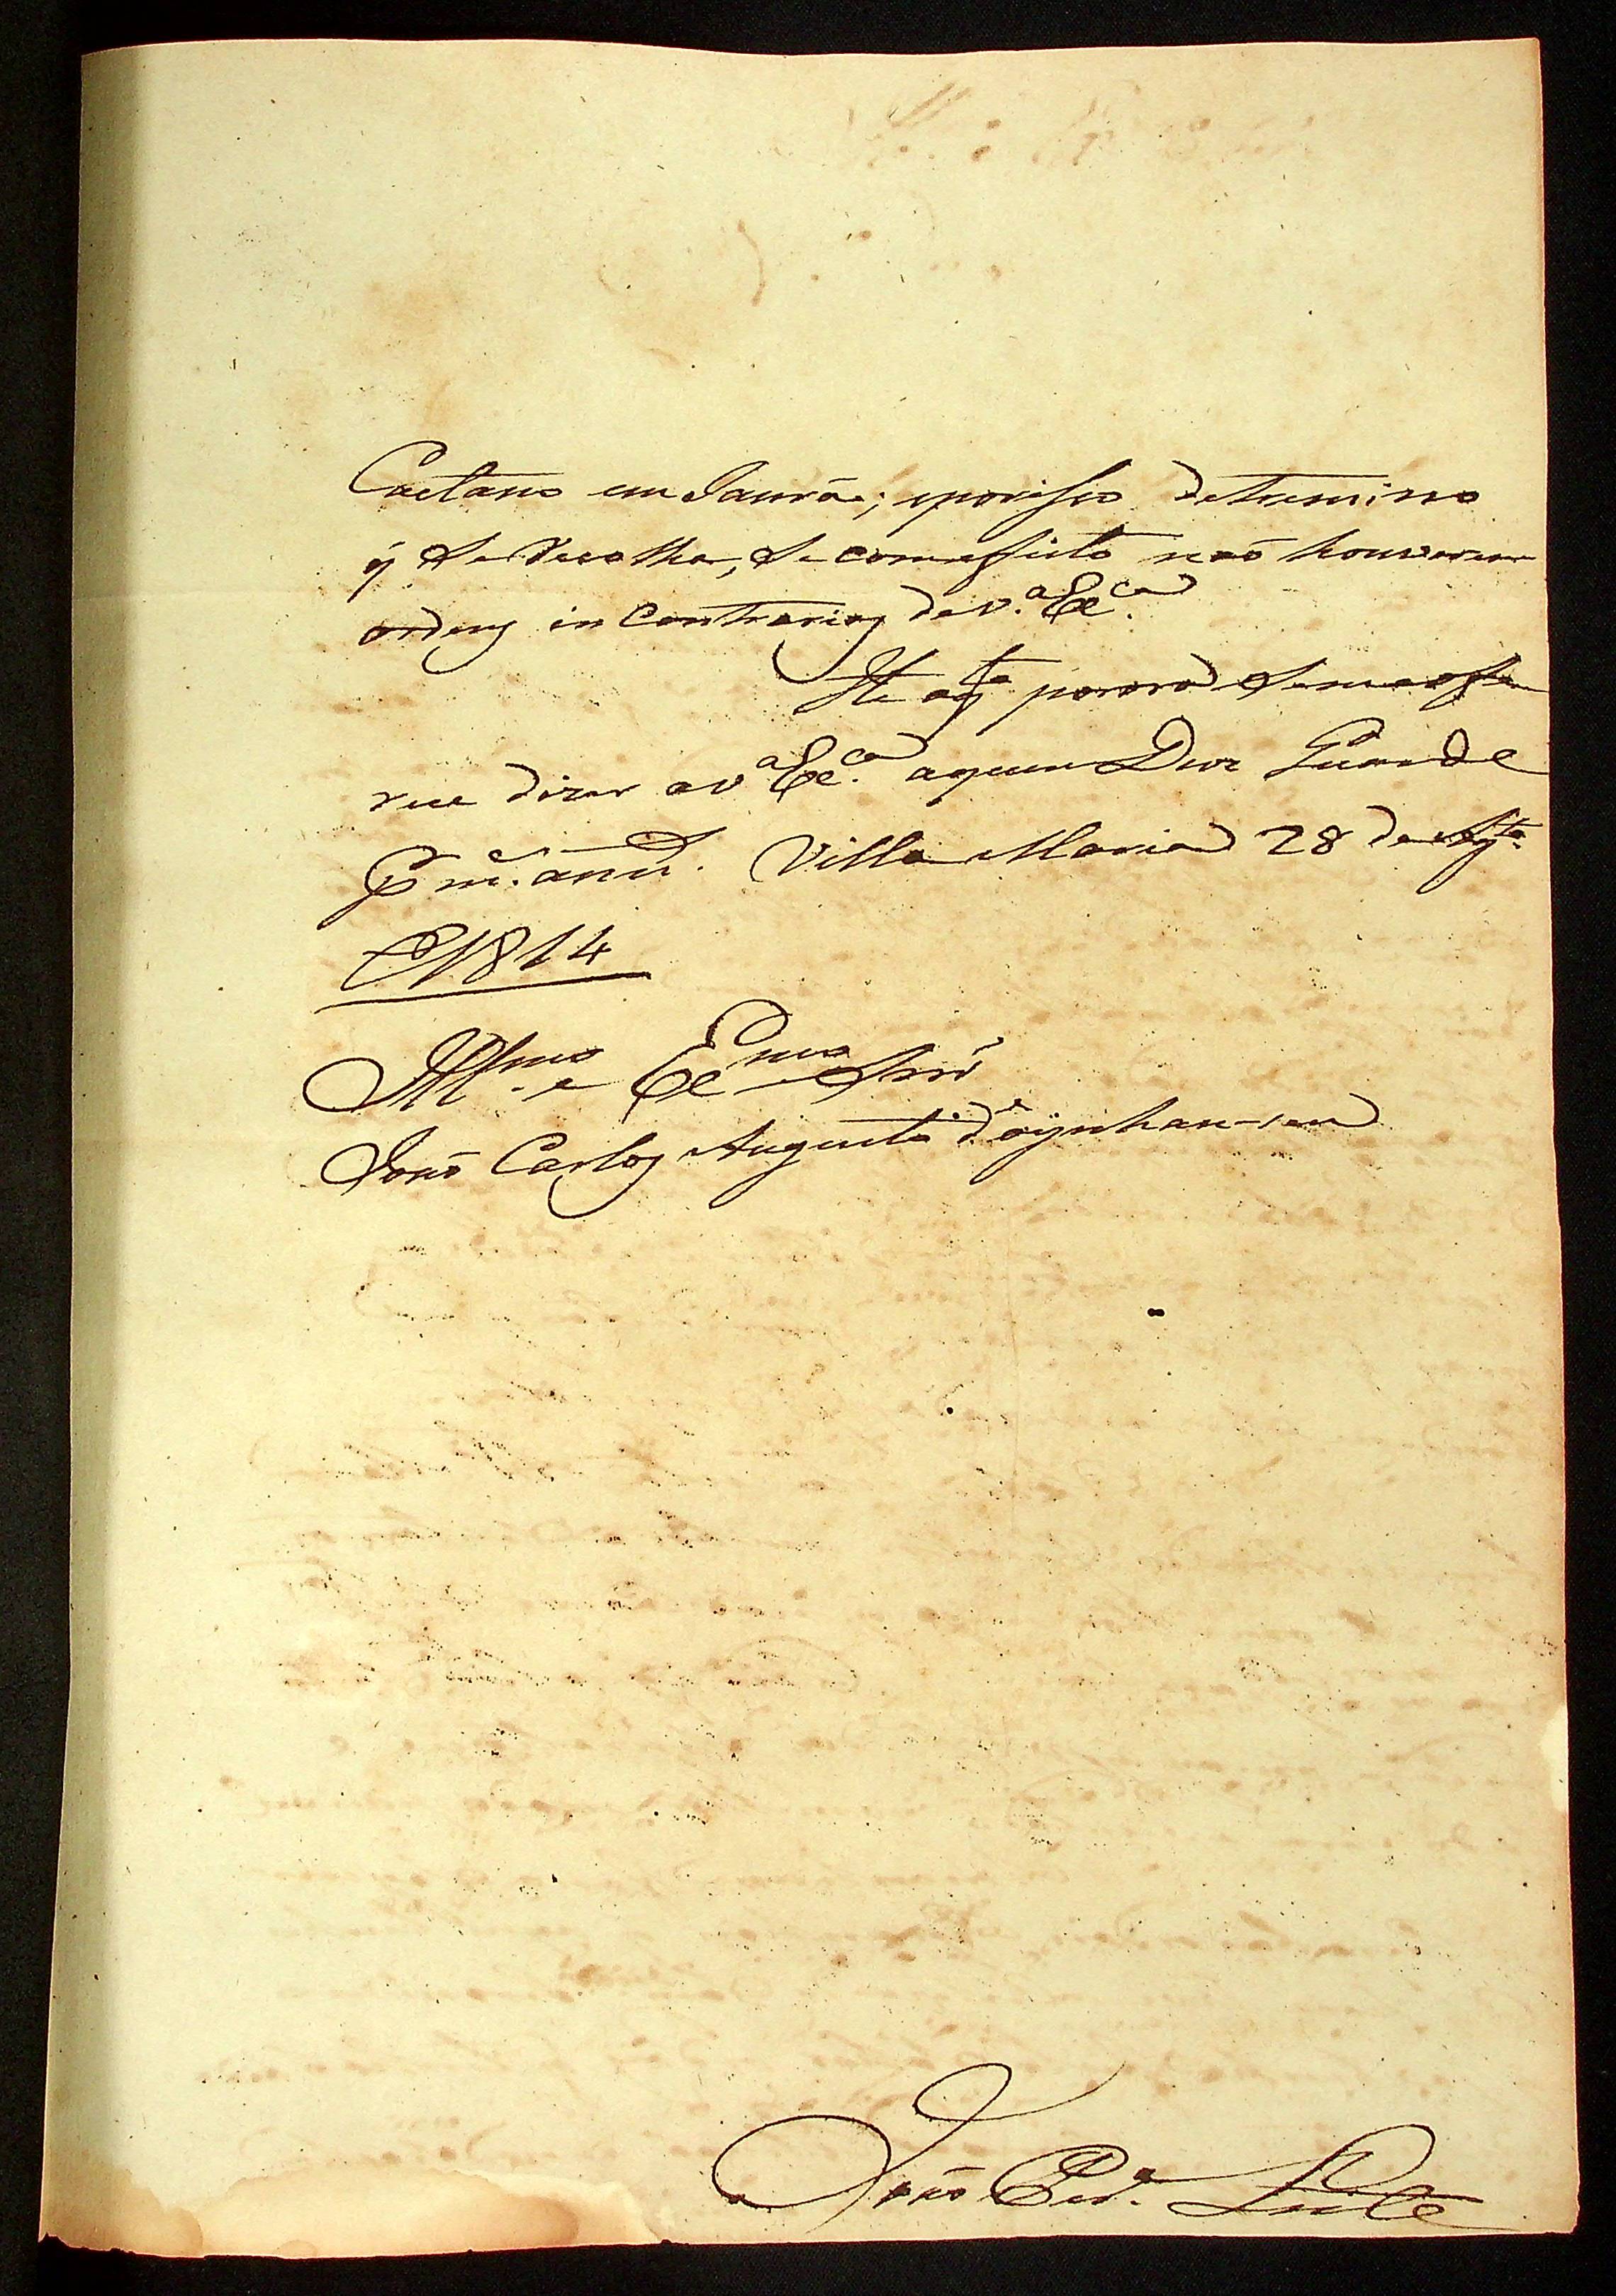 Caetano em Jaurú; eporisso determino
q̃ Se Recolha, Se com effeito naõ houverem
ordens in Contrarios de V.ª Ex.cª
He oq̃ por ora Se me offe
rece dizer a V.ª Ex.cª aquem Deos Guarde
p.r m.s ann.s Villa Maria 28 de Ag.to
de 1814
Ill.mo e Ex.mo Snr̃
Joaõ Carlos Augusto d'oÿnhausen
Joaõ Per.ª Leite